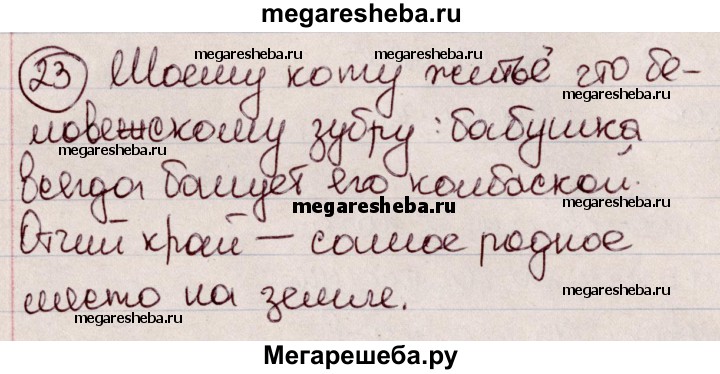 megaresheba.ru
23 Моему коту житьё что бе-
megaresheba.ru
megaresheba.ru
megaresheba.ru
ловежскому зубру: бабушка
megaresheba.ru
megaresheba.ru
всегда балует его колбаской.
megaresheba.ru
megaresheba.ru
Отчий край — самое родное
место на земле.
megaresheba.ru
megaresheba.ru
Мегарешеба.ру